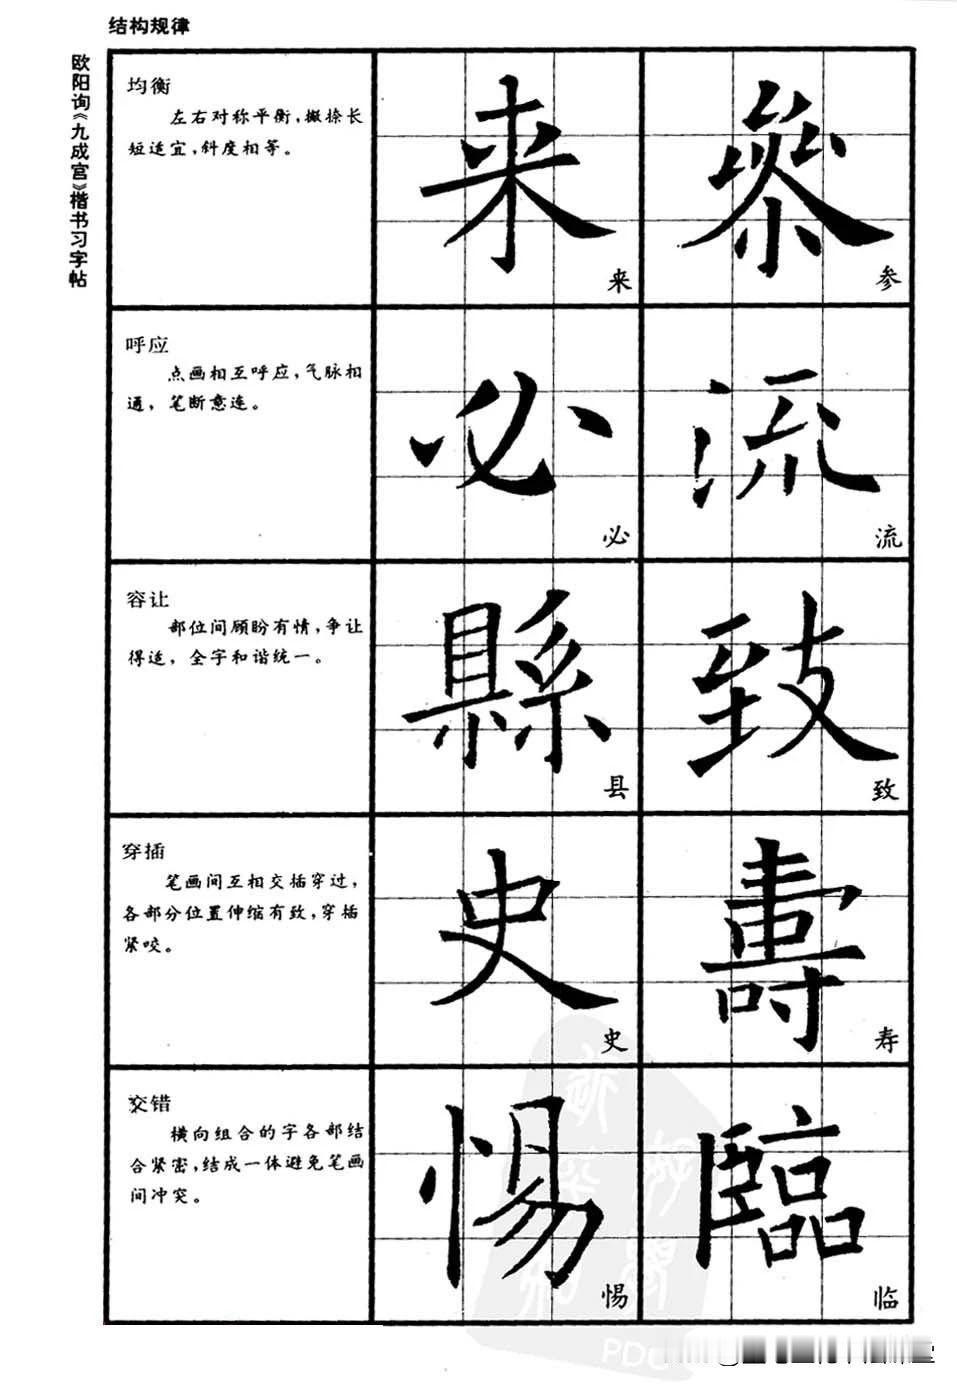 结构规律
欧阳询《九成宫》楷书习字帖
均衡
左右对称平衡，撇捺长
短适宜，斜度相等。
来
来
参
参
呼应
点画相互呼应，气脉相
通，笔断意连。
必
必
流
流
容让
部位间顾盼有情，争让
得适，全字和谐统一。
縣
县
致
致
穿插
笔画间互相交插穿过，
各部分位置伸缩有致，穿插
紧咬。
史
史
壽
寿
交错
横向组合的字各部结
合紧密，结成一体避免笔画
间冲突。
惕
惕
臨
临
PDG